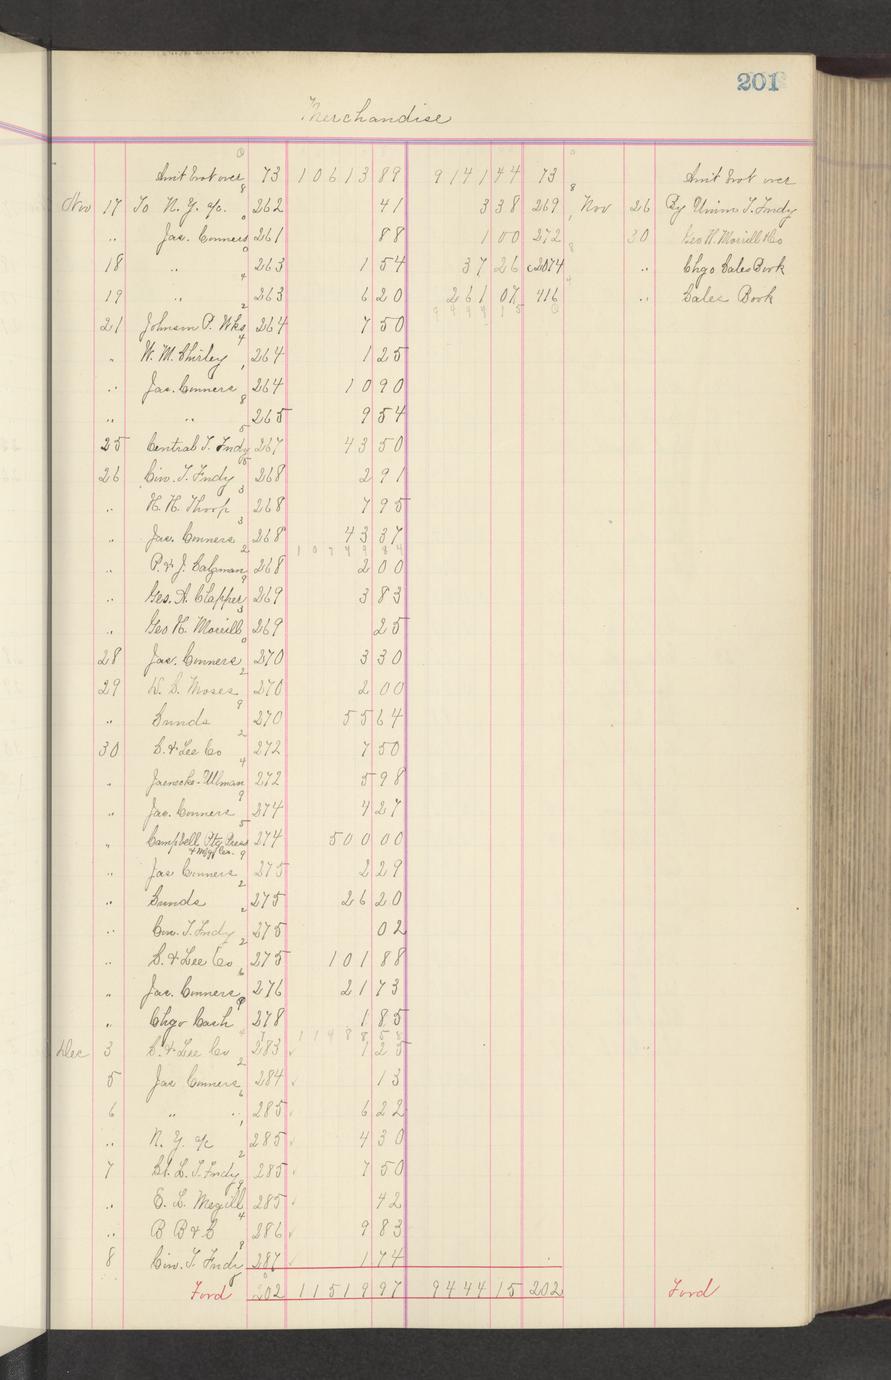 201
Merchandise
Amt brot over 73 10613 89 9141 44 73 Amt brot over
Nov 17 To N. Y. a/c. 262 41 3 38 269 Nov 26 By Union T. Fndy
" Jas. Conners 261 88 1 00 272 30 Geo H. Morrill & Co
18 " 263 1 54 37 26 c2074 " Chgo Sales Book
19 " 263 6 20 261 07 416 " Sales Book
9444 15
21 Johnson P. Wks 264 7 50
" W. M. Shirley 264 1 25
" Jas. Conners 264 10 90
" " 265 9 54
25 Central T. Fndy 267 43 50
26 Cin. T. Fndy 268 2 91
" H. H. Thorp 268 7 95
" Jas. Conners 268 43 37
10749 84
" P. & J. 268 2 00
" Geo. A. Clapper 269 3 83
" Geo H. Morrill 269 25
28 Jas. Conners 270 3 30
29 W. S. Moses 270 2 00
" Sunds 270 55 64
30 S. & Lee Co 272 7 50
" Jaenecke-Ulman 272 5 98
" Jas. Conners 274 4 27
" Campbell Ptg Press & Mfg Co. 274 500 00
" Jas Conners 275 2 29
" Sunds 275 26 20
" Cin. T. Fndy 275 02
" S. & Lee Co 275 101 88
" Jas. Conners 276 21 73
" Chgo Cash 278 1 85
11488 58
Dec 3 S. & Lee Co 283 1 25
5 Jas Conners 284 13
6 " " 285 6 22
" N. Y. a/c 285 4 30
7 St. L. T. Fndy 285 7 50
" E. L. Megill 285 42
" B B & S 286 9 83
8 Cin. T. Fndy 287 1 74
Ford 202 11519 97 9444 15 202 Ford